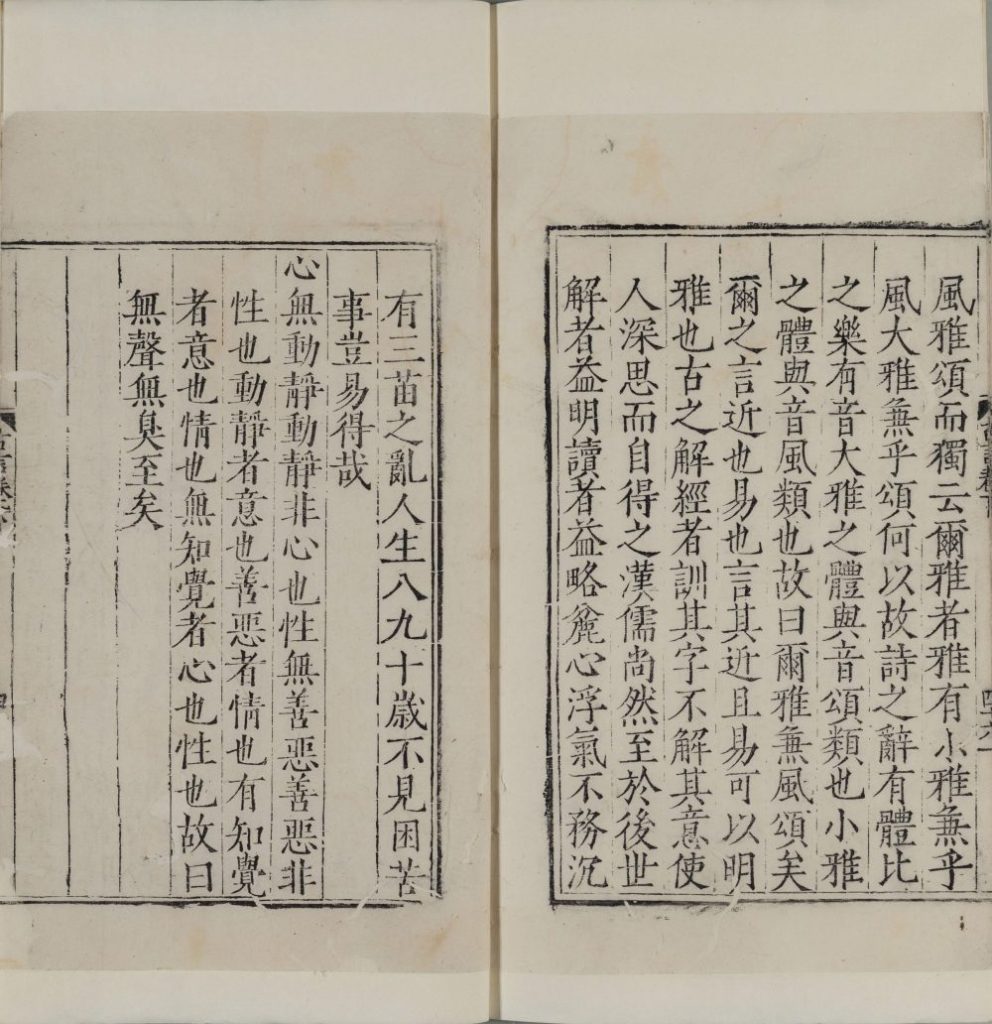 風雅頌而獨云爾雅者雅有小雅無乎
風大雅無乎頌何以故詩之辭有體比
之樂有音大雅之體與音頌類也小雅
之體與音風類也故曰爾雅無風頌矣
爾之言近也易也言其近且易可以明
雅也古之解經者訓其字不解其意使
人深思而自得之漢儒尚然至於後世
解者益明讀者益略麄心浮氣不務沉
有三苗之亂人生八九十歲不見困苦
事豈易得哉
心無動靜動靜非心也性無善惡善惡非
性也動靜者意也善惡者情也有知覺
者意也情也無知覺者心也性也故曰
無聲無臭至矣